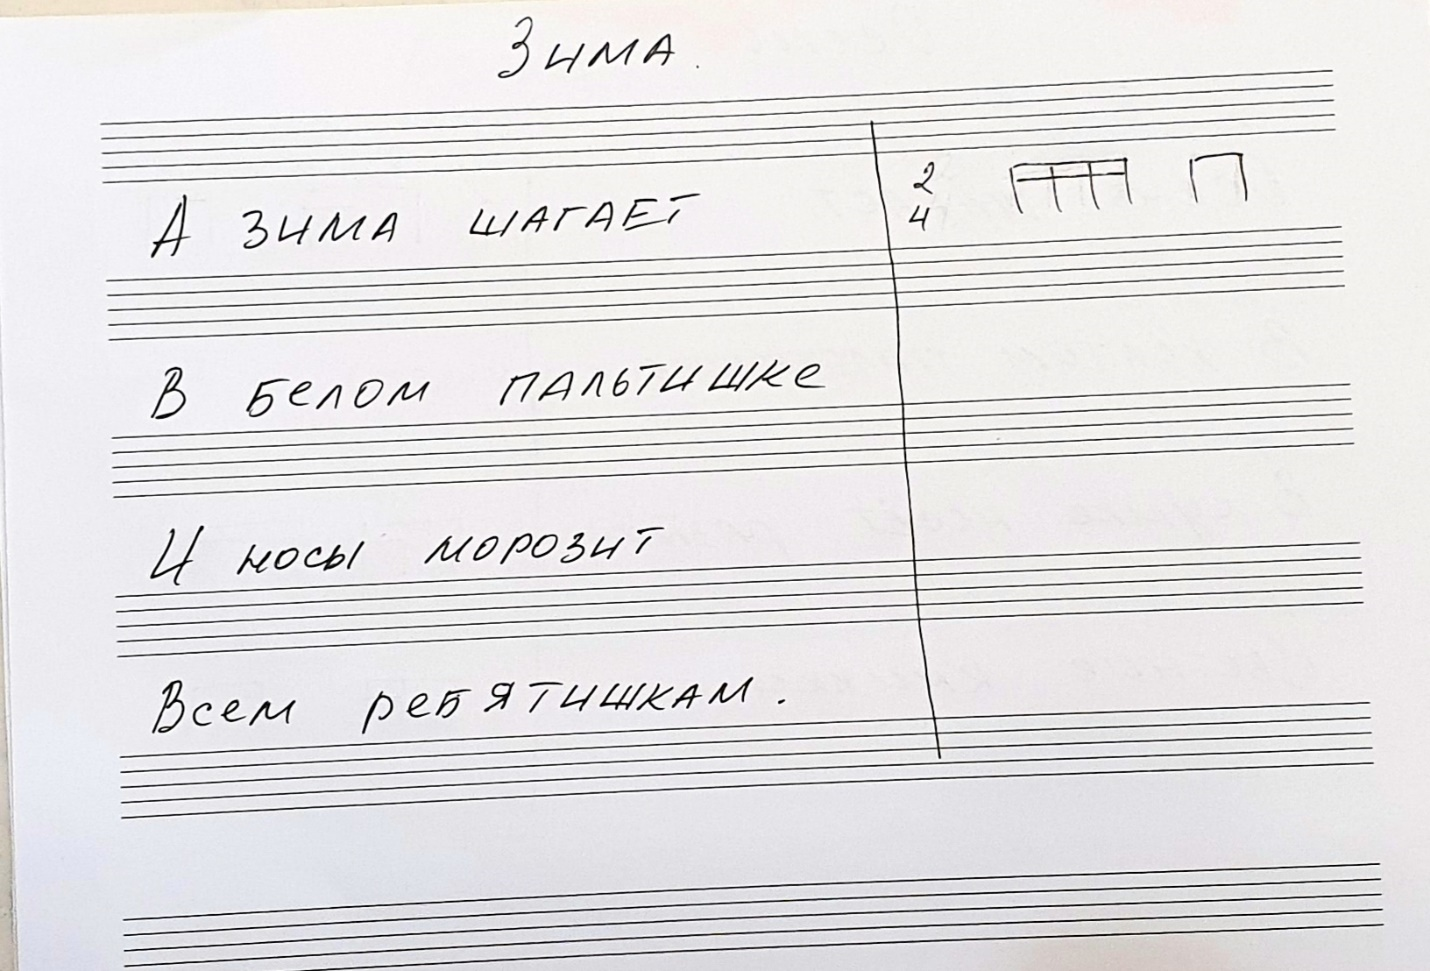 Зима.
А зима шагает
2
4
В белом пальтишке
И носы морозит
Всем ребятишкам.